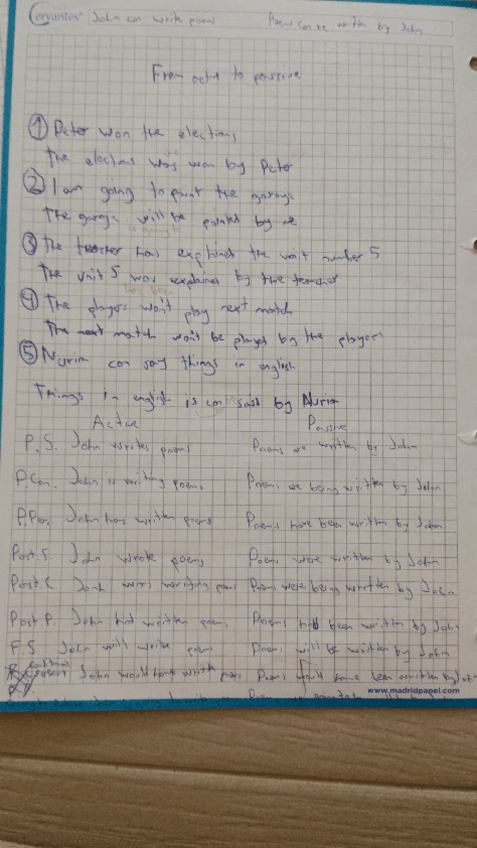 Cervantes John can write poems Poems can be written by John
From active to passive
① Peter won the elections
The elections was won by Peter
② I am going to paint the garage
The garage will be painted by me
③ The teacher has explained the unit number 5
The unit 5 was explained by the teacher
④ The players won't play next match
The next match won't be played by the players
⑤ Nuria can say things in english
Things in english is can said by Nuria
Active Passive
P.S. John writes poems Poems are written by John
P.Con. John is writing poems Poems are being written by John
P.Per. John has written poems Poems have been written by John
Past.S. John wrote poems Poems were written by John
Past.C. John was writing poems Poems were being written by John
Past P. John had written poems Poems had been written by John
F.S John will write poems Poems will be written by John
John would have written poems Poems would have been written by John
www.madridpapel.com